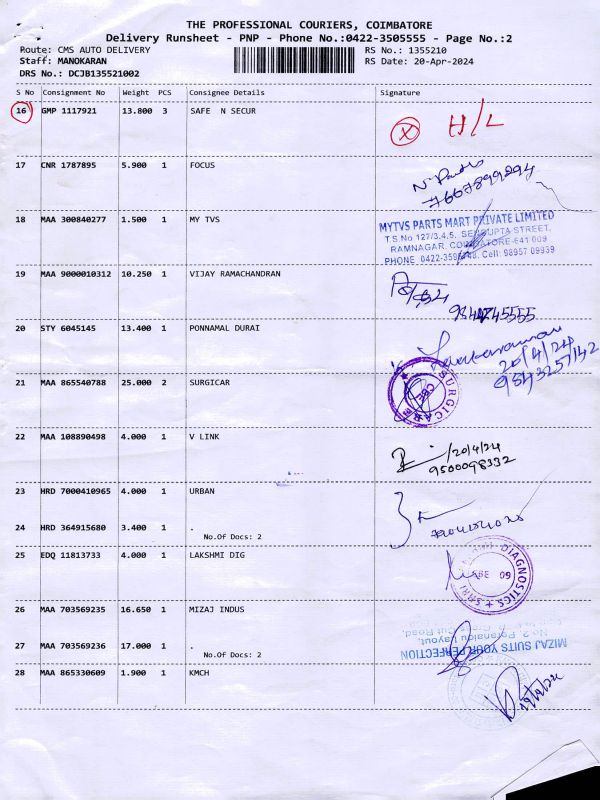 THE PROFESSIONAL COURIERS, COIMBATORE
Delivery Runsheet - PNP - Phone No.:0422-3505555 - Page No.:2
Route: CMS AUTO DELIVERY RS No.: 1355210
Staff: MANOKARAN RS Date: 20-Apr-2024
DRS No.: DCJB135521002
S No Consignment No Weight PCS Consignee Details Signature
16 GMP 1117921 13.800 3 SAFE N SECUR
X H/L
17 CNR 1787895 5.900 1 FOCUS
7667899894
18 MAA 300840277 1.500 1 MY TVS
MYTVS PARTS MART PRIVATE LIMITED
T.S.No 127/3,4,5, SENGUPTA STREET,
RAMNAGAR, COIMBATORE-641 009
PHONE 0422- Cell: 98957 09939
19 MAA 9000010312 10.250 1 VIJAY RAMACHANDRAN
20 STY 6045145 13.400 1 PONNAMAL DURAI
20/4/24
9843257142
21 MAA 865540788 25.000 2 SURGICAR
SURGICARE
CBE
22 MAA 108890498 4.000 1 V LINK
20/4/24
9500098332
23 HRD 7000410965 4.000 1 URBAN
24 HRD 364915680 3.400 1 .
No.Of Docs: 2
25 EDQ 11813733 4.000 1 LAKSHMI DIG
DIAGNOSTICS
26 MAA 703569235 16.650 1 MIZAJ INDUS
MIZAJ SUITS YOUR PERFECTION
27 MAA 703569236 17.000 1 .
No.Of Docs: 2
28 MAA 865330609 1.900 1 KMCH